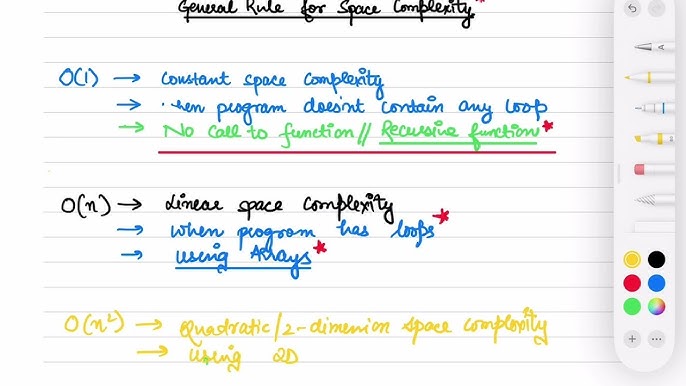 General Rule for Space Complexity *
O(1) → Constant space complexity
→ program doesn't contain any loop
→ No call to function // Recursive function *
O(n) → Linear space complexity
→ when program has loops *
→ using Arrays *
O(n²) → Quadratic/2-dimension space complexity
→ using 2D